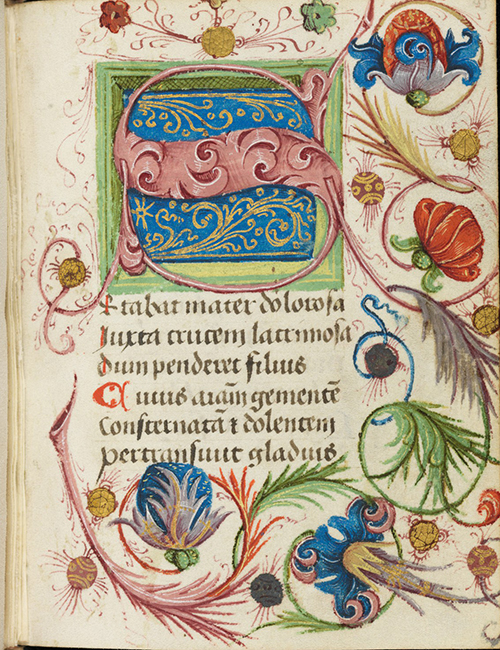 Stabat mater dolorosa
Iuxta crucem lacrimosa
dum penderet filius
Cuius aīam gementē
Consternatā ⁊ dolentem
pertransiuit gladius